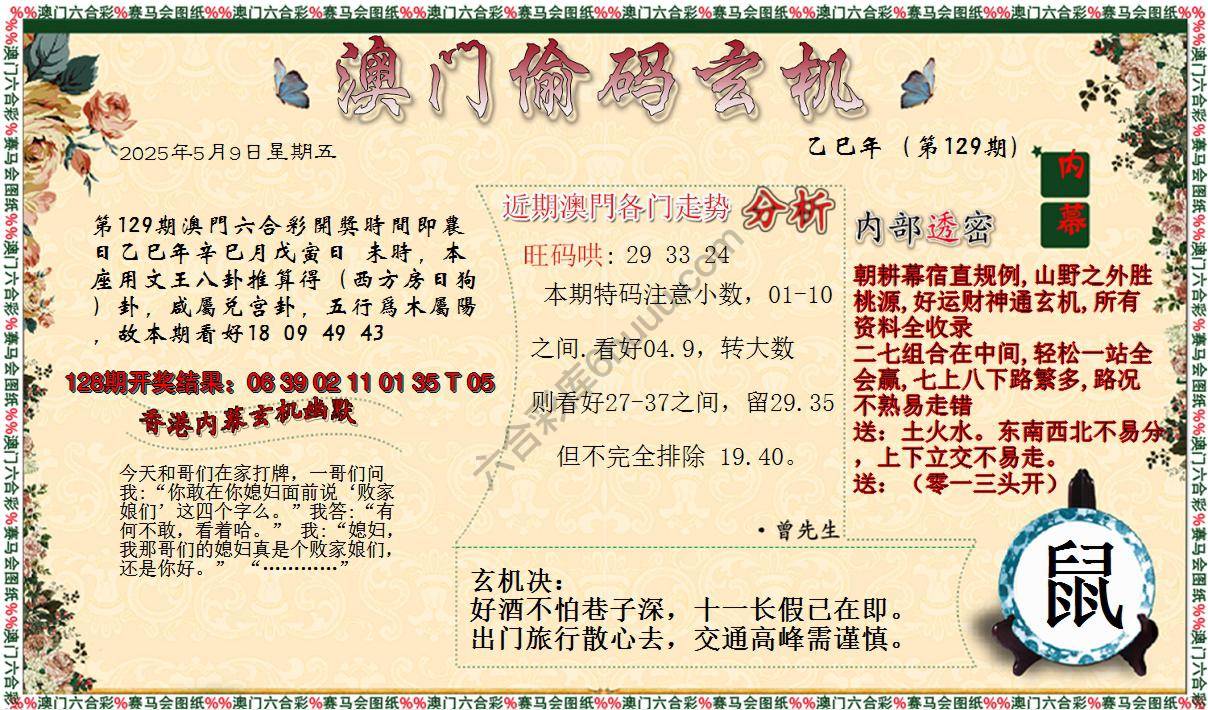 %%澳门六合彩%赛马会图纸%%澳门六合彩%赛马会图纸%%澳门六合彩%赛马会图纸%%澳门六合彩%赛马会图纸%%澳门六合彩%赛马会图纸%%澳门六合彩%赛马会图纸%%
澳门偷码玄机
2025年5月9日星期五
乙巳年（第129期）
内
幕
第129期澳門六合彩開獎時間即農
日乙巳年辛巳月戊寅日 未時，本
座用文王八卦推算得（西方房日狗
）卦，咸屬兑宫卦，五行爲木屬陽
，故本期看好18 09 49 43
128期开奖结果：06 39 02 11 01 35 T 05
香港内幕玄机幽默
今天和哥们在家打牌，一哥们问
我:“你敢在你媳妇面前说‘败家
娘们’这四个字么。”我答:“有
何不敢，看着哈。” 我:“媳妇，
我那哥们的媳妇真是个败家娘们，
还是你好。” “…………”
近期澳門各门走势 分析
旺码哄: 29 33 24
本期特码注意小数，01-10
之间.看好04.9，转大数
则看好27-37之间，留29.35
但不完全排除 19.40。
·曾先生
内部透密
朝耕幕宿直规例,山野之外胜
桃源,好运财神通玄机,所有
资料全收录
二七组合在中间,轻松一站全
会赢,七上八下路繁多,路况
不熟易走错
送：土火水。东南西北不易分
，上下立交不易走。
送：（零一三头开）
玄机决：
好酒不怕巷子深，十一长假已在即。
出门旅行散心去，交通高峰需谨慎。
鼠